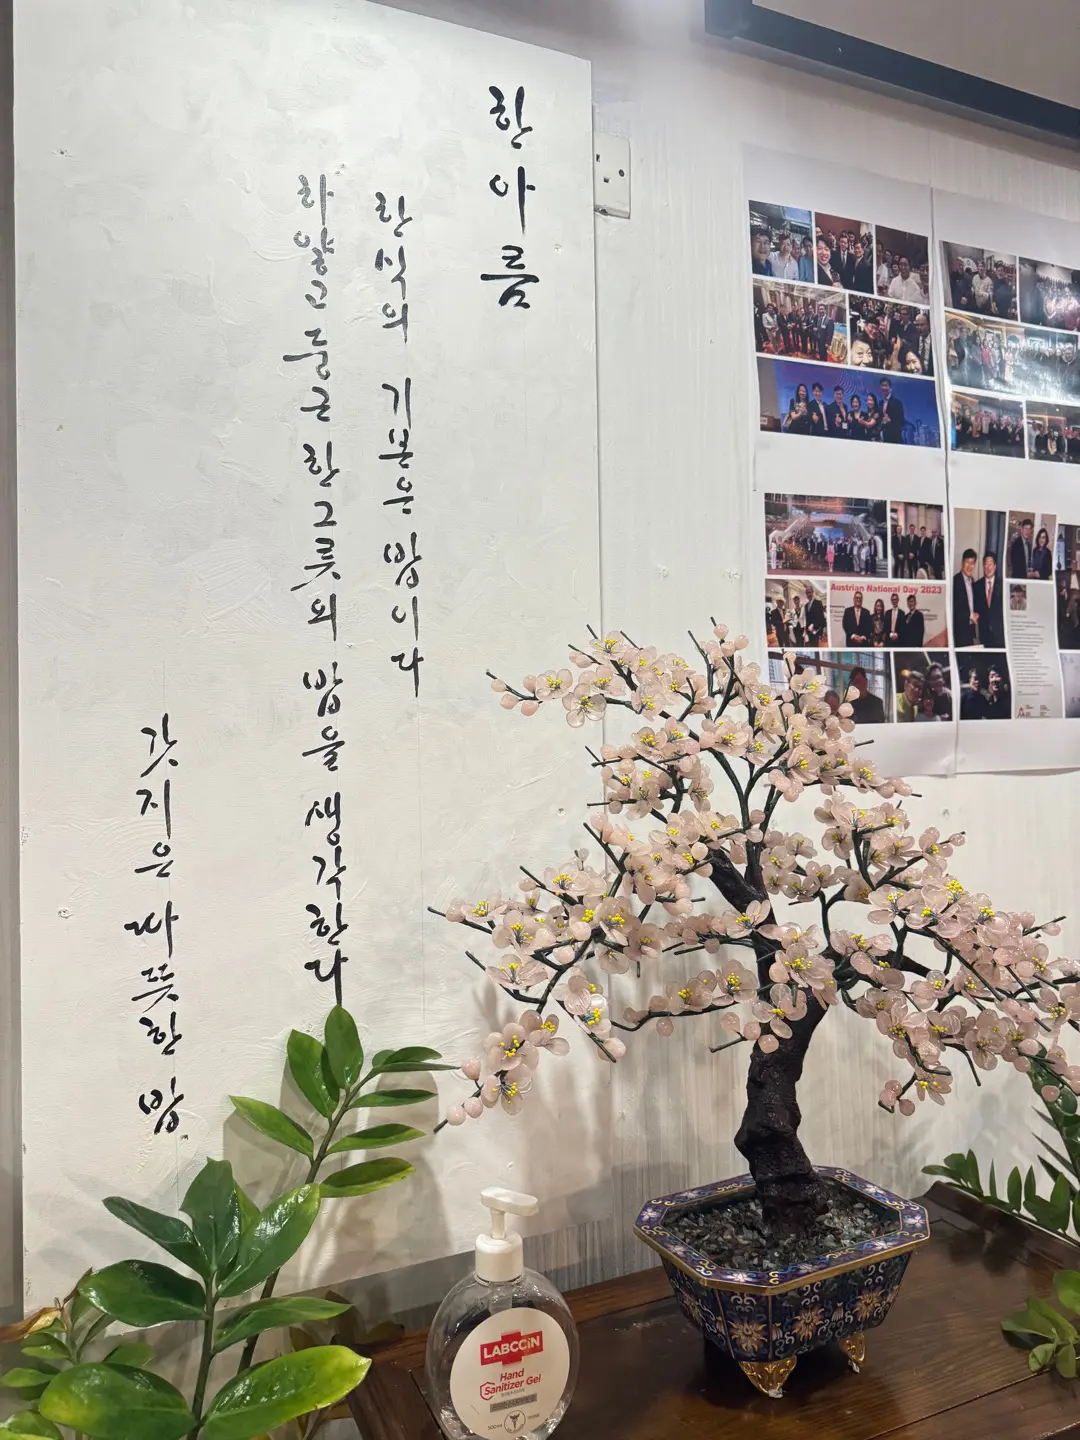 한아름
한식의 기본은 밥이다
하얗고 둥근 한그릇의 밥을 생각한다
갓지은 따뜻한 밥
Austrian National Day 2023
LABCCiN
Hand
Sanitizer Gel